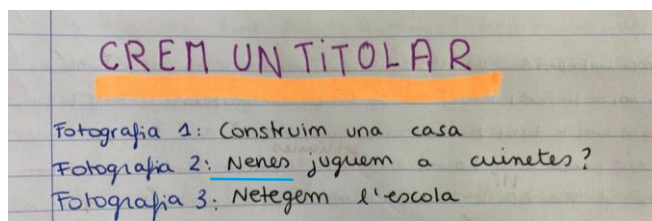 CREM UN TiTOLAR
Fotografia 1: Construim una casa
Fotografia 2: Nenes juguem a cuinetes?
Fotografia 3: Netegem l'escola